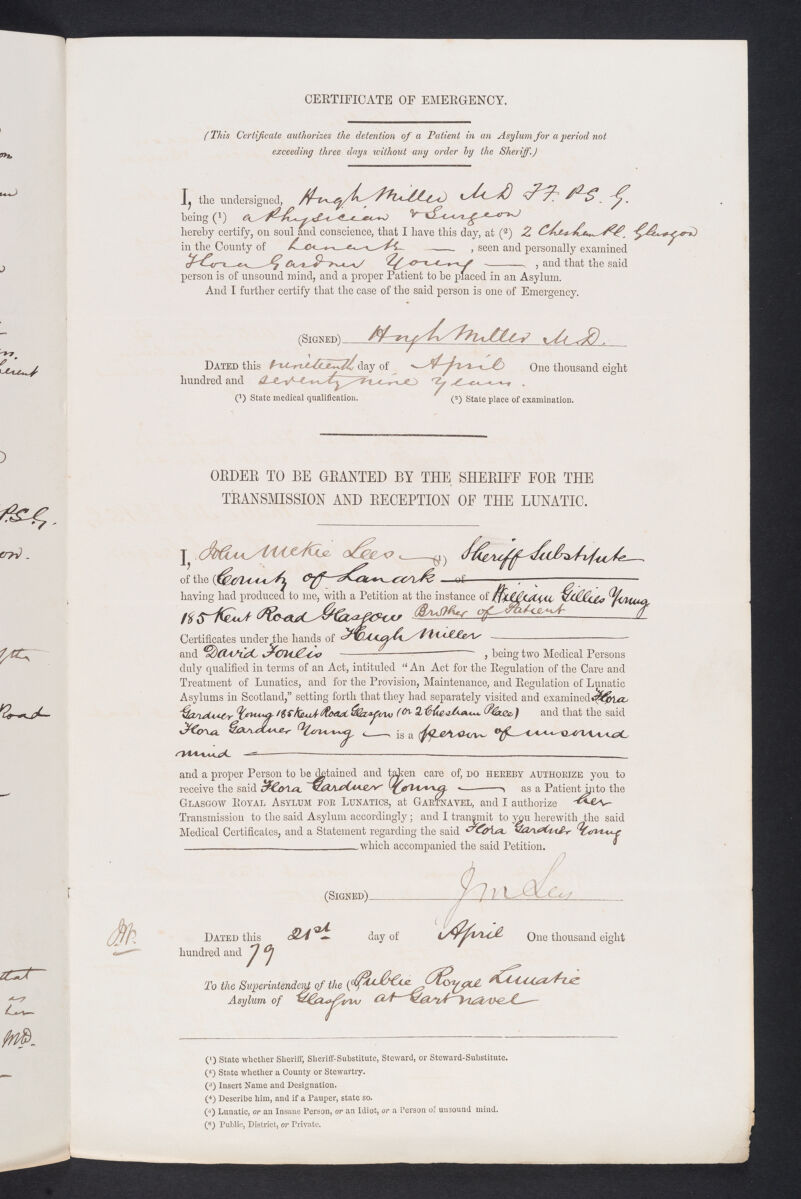 CERTIFICATE OF EMERGENCY.
(This Certificate authorizes the detention of a Patient in an Asylum for a period not
exceeding three days without any order by the Sheriff.)
I, the undersigned, Hugh Miller MD F.F.P.S.G.
being (1) a Physician & Surgeon
hereby certify, on soul and conscience, that I have this day, at (2) 2 Chesham Pl. Glasgow
in the County of Lanark, seen and personally examined
Flora Gardner Young, and that the said
person is of unsound mind, and a proper Patient to be placed in an Asylum.
And I further certify that the case of the said person is one of Emergency.
(SIGNED) Hugh Miller M.D.
DATED this nineteenth day of April One thousand eight
hundred and seventy nine years.
(1) State medical qualification. (2) State place of examination.
ORDER TO BE GRANTED BY THE SHERIFF FOR THE
TRANSMISSION AND RECEPTION OF THE LUNATIC.
I, John McKie Lees (1) Sheriff Substitute
of the (County of Lanark of
having had produced to me, with a Petition at the instance of William Gillies Young
185 Kent Road Glasgow Brother of Patient
Certificates under the hands of Hugh Miller
and David Foulis, being two Medical Persons
duly qualified in terms of an Act, intituled "An Act for the Regulation of the Care and
Treatment of Lunatics, and for the Provision, Maintenance, and Regulation of Lunatic
Asylums in Scotland," setting forth that they had separately visited and examined Flora
Gardner Young 185 Kent Road Glasgow (or 2 Chesham Place) and that the said
Flora Gardner Young is a person of unsound
mind
and a proper Person to be detained and taken care of, DO HEREBY AUTHORIZE you to
receive the said Flora Gardner Young as a Patient into the
GLASGOW ROYAL ASYLUM FOR LUNATICS, at GARTNAVEL, and I authorize her
Transmission to the said Asylum accordingly; and I transmit to you herewith the said
Medical Certificates, and a Statement regarding the said Flora Gardner Young
which accompanied the said Petition.
(SIGNED) J M Lees
DATED this 21st day of April One thousand eight
hundred and 79
To the Superintendent of the (Public Royal Lunatic
Asylum of Glasgow at Gartnavel
(1) State whether Sheriff, Sheriff-Substitute, Steward, or Steward-Substitute.
(2) State whether a County or Stewartry.
(3) Insert Name and Designation.
(4) Describe him, and if a Pauper, state so.
(5) Lunatic, or an Insane Person, or an Idiot, or a Person of unsound mind.
(6) Public, District, or Private.
P.S.G.
Road
that
as
her
MD.